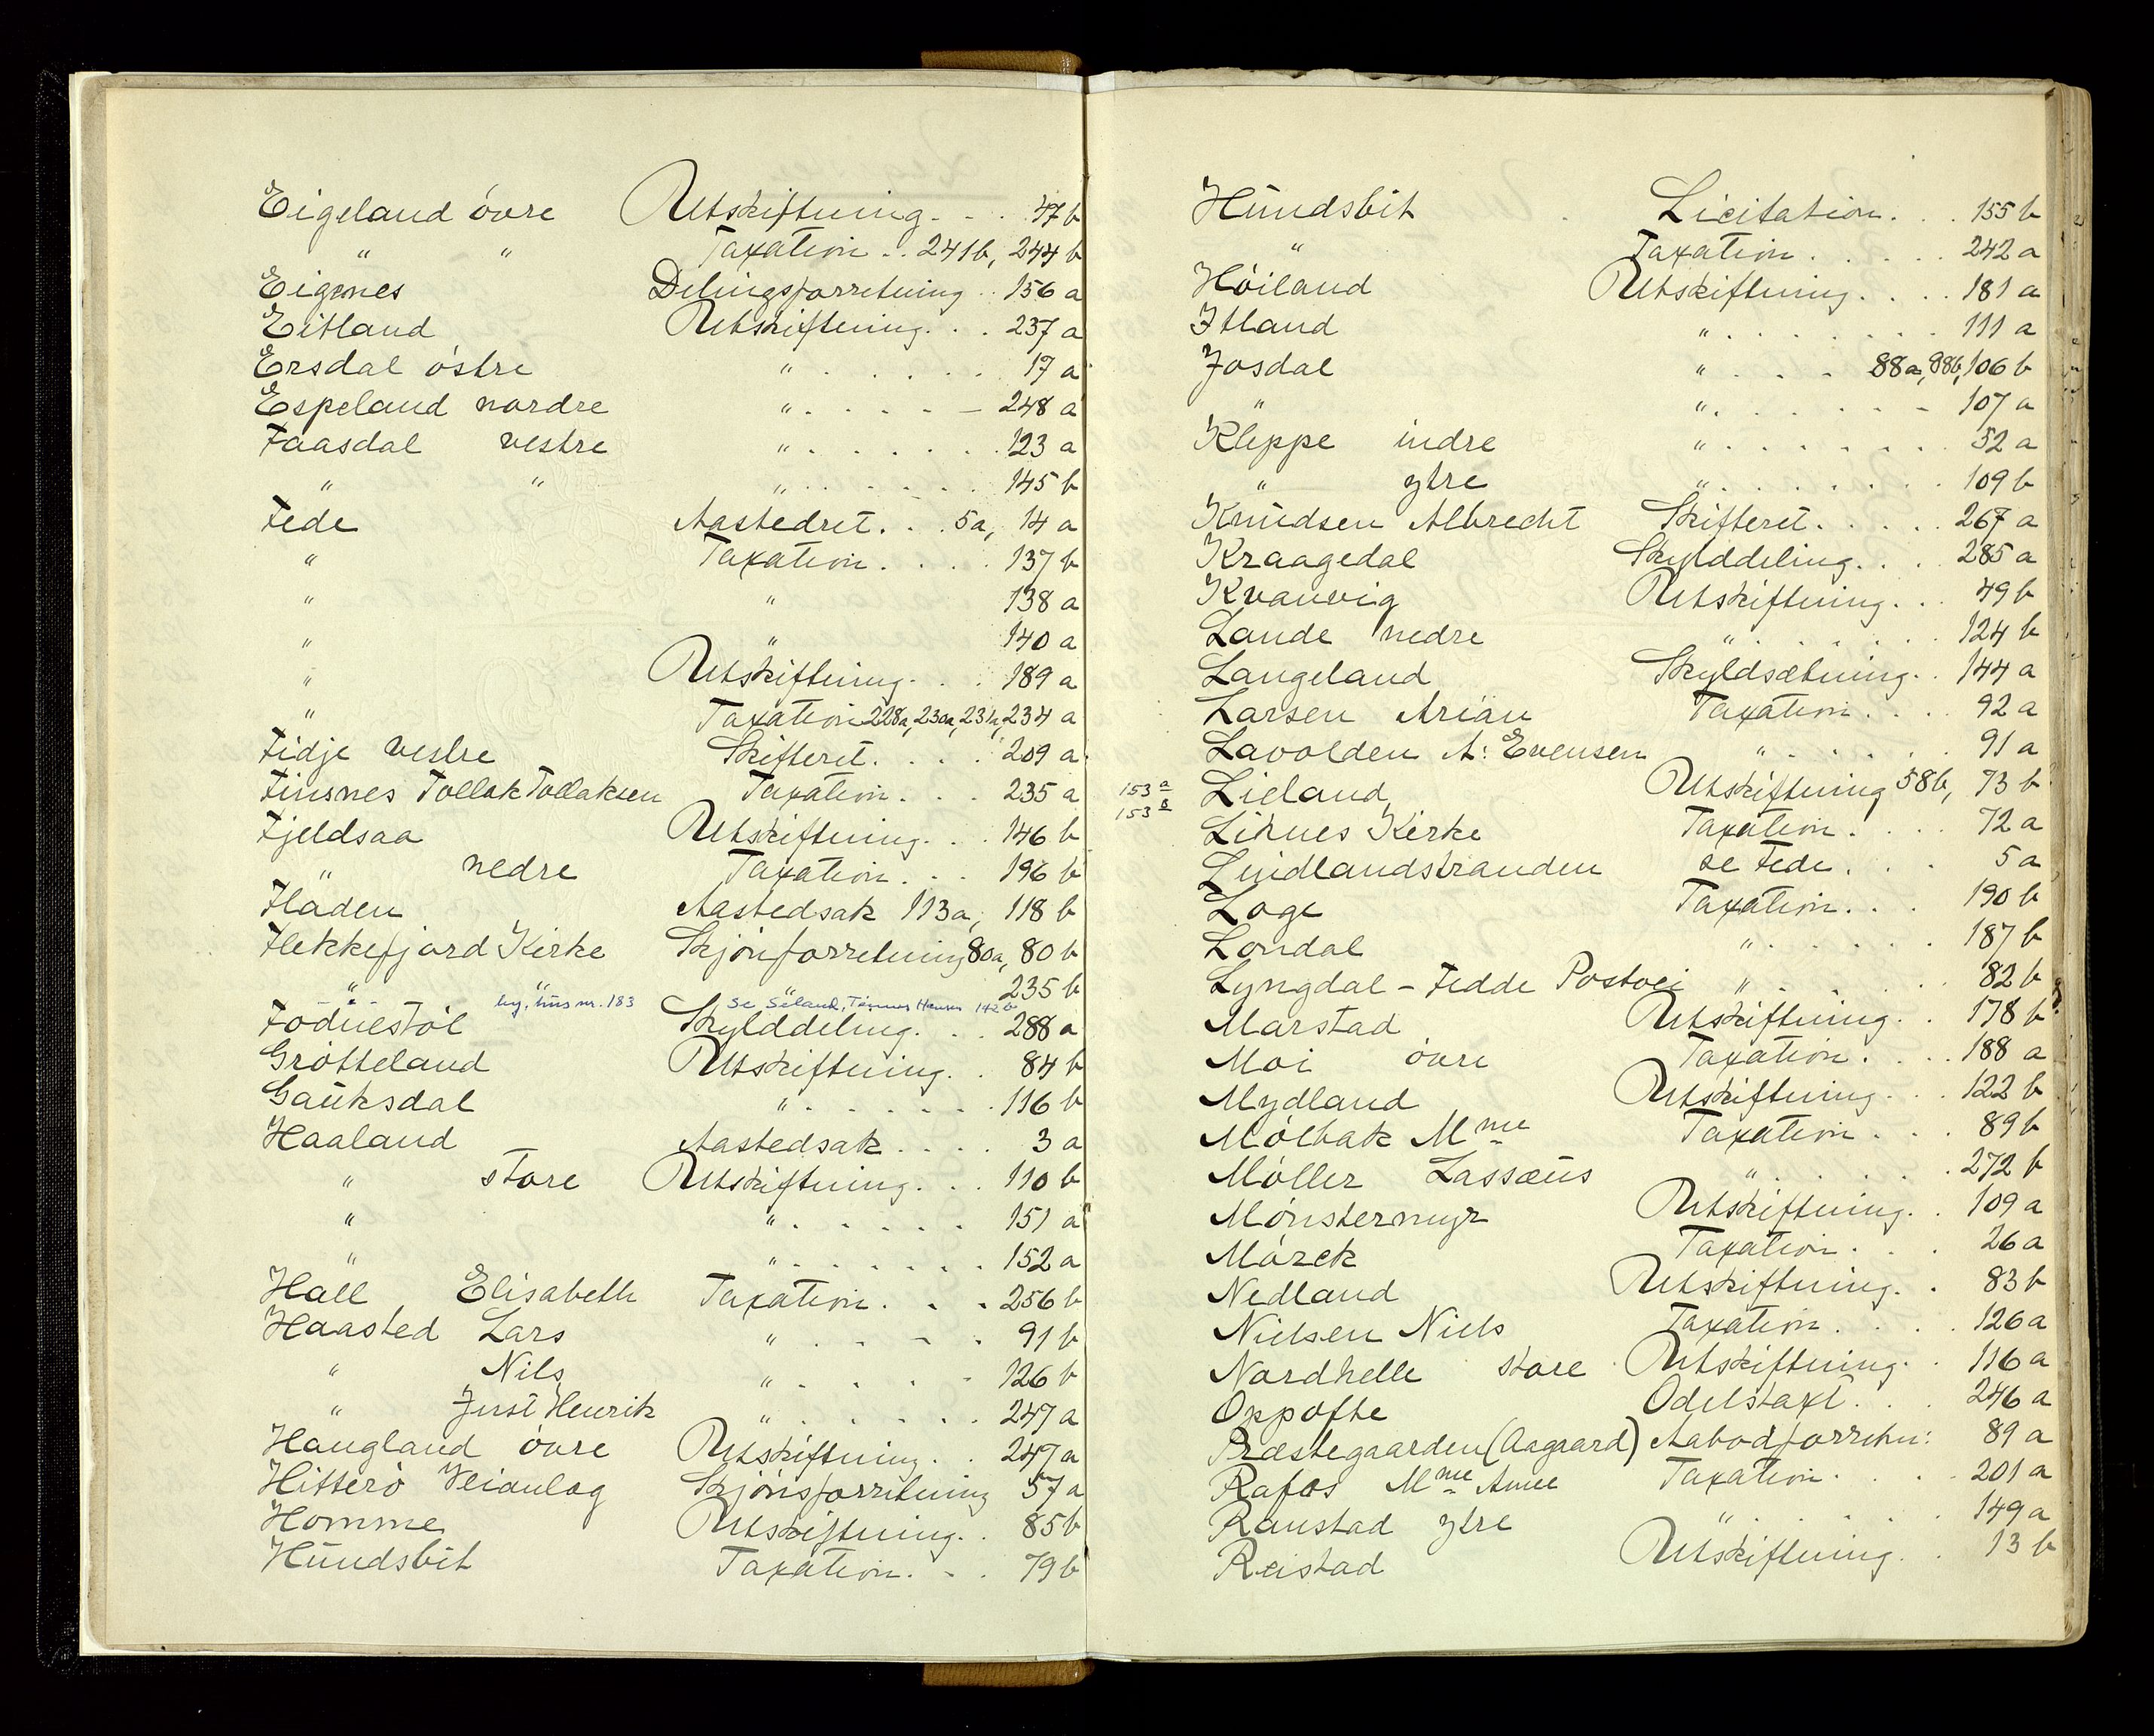 Eigeland övre Utskiftning . . . 47 b
" " Taxation . . 241b, 244 b
Eigenes Delingsforretning . . 156 a
Eitland Utskiftning . . . 237 a
Ersdal östre " . . . . . . 17 a
Espeland nordre " . . . . . 248 a
Faasdal vestre " . . . . . . 123 a
" " " . . . . . . 145 b
Fede Aastedret . . . 5a, 14 a
" Taxation . . . . 137 b
" " 138 a
" " 140 a
" Utskiftning . . . 189 a
" Taxation 228a, 230a, 231a, 234 a
Fidje vestre Skifteret . . . . 209 a
Finsnes Tollak Tollaksen Taxation . . . 235 a
Fjeldsaa Utskiftning . . . 146 b
" nedre Taxation . . . 196 b
Fläden Aastedsak 113a, 118 b
Flekkefjord Kirke Skjönforretning 80a, 80 b
" " " 235 b
by, hus nr. 183 Se Seland, Tønnes Hansen 142 b
Födnestöl Skylddeling . . . 288 a
Grötteland Utskiftning . . 84 b
Gauksdal " . . . . . . 116 b
Haaland Aastedsak . . . . 3 a
" store Utskiftning . . . 110 b
" " . . . . . 151 a
" " . . . . . . 152 a
Hall Elisabeth Taxation . . . 256 b
Haasted Lars " . . . . 91 b
" Nils " . . . . 126 b
" Just Henrik " . . . . . 247 a
Haugland övre Utskiftning . . 247 a
Hitterö Veianlag Skjönsforretning 57 a
Homme Utskiftning . . 85 b
Hundsbit Taxation . . . 79 b
Hundsbit Licitation . . . 155 b
" Taxation . . . . . 242 a
Höiland Utskiftning . . . . 181 a
Itland " . . . . . . 111 a
Josdal " . . . . 88a, 98b, 106 b
" " . . . . . . 107 a
Kleppe indre " . . . . . . 52 a
" ytre " . . . . . . . 109 b
Knudsen Albrecht Skifteret . . . . . 267 a
Kraagedal Skylddeling . . . 285 a
Kvanvig Utskiftning . . . 49 b
Lande nedre " . . . . . . 124 b
Langeland Skyldsætning . . 144 a
Larsen Arian Taxation . . . . 92 a
Lavolden A: Evensen " . . . . . . 91 a
153 a Lieland Utskiftning 58b, 73 b
153 b
Liknes Kirke Taxation . . . . 72 a
Lindlandstranden se Fede . . . 5 a
Loge Taxation . . . 190 b
Londal " . . . . . 187 b
Lyngdal - Fedde Postvei " . . . . . 82 b
Marstad Utskiftning . . 178 b
Moi övre Taxation . . . . 188 a
Mydland Utskiftning . . . 122 b
Mölbak Mme Taxation . . . . 89 b
Möller Lassæus " . . . . . . 272 b
Mönstermyr Utskiftning . . 109 a
Mörck Taxation . . . 26 a
Nedland Utskiftning . . 83 b
Nielsen Niels Taxation . . . . 126 a
Nordhelle store Utskiftning . . 116 a
Oppofte Odelstaxt . . . 246 a
Præstegaarden (Aagaard) Aabodforretn: 89 a
Rafos Mme Anne Taxation . . . . 201 a
Raustad ytre " . . . . . 149 a
Reistad Utskiftning . . 13 b